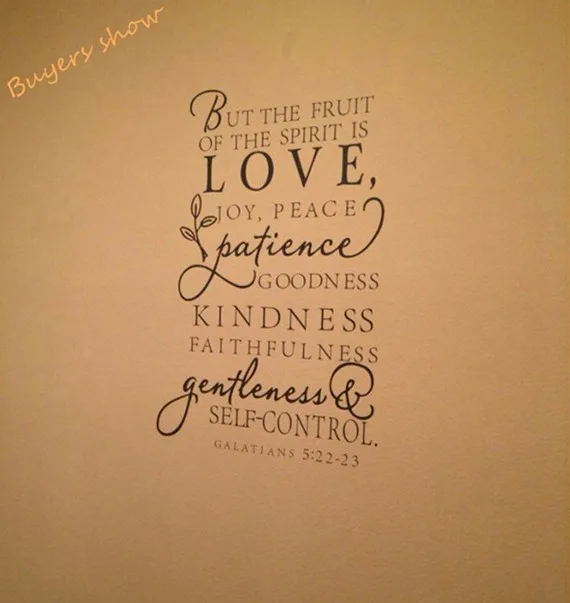 Buyers show
BUT THE FRUIT
OF THE SPIRIT IS
LOVE,
JOY, PEACE
patience
GOODNESS
KINDNESS
FAITHFULNESS
gentleness &
SELF-CONTROL.
GALATIANS 5:22-23